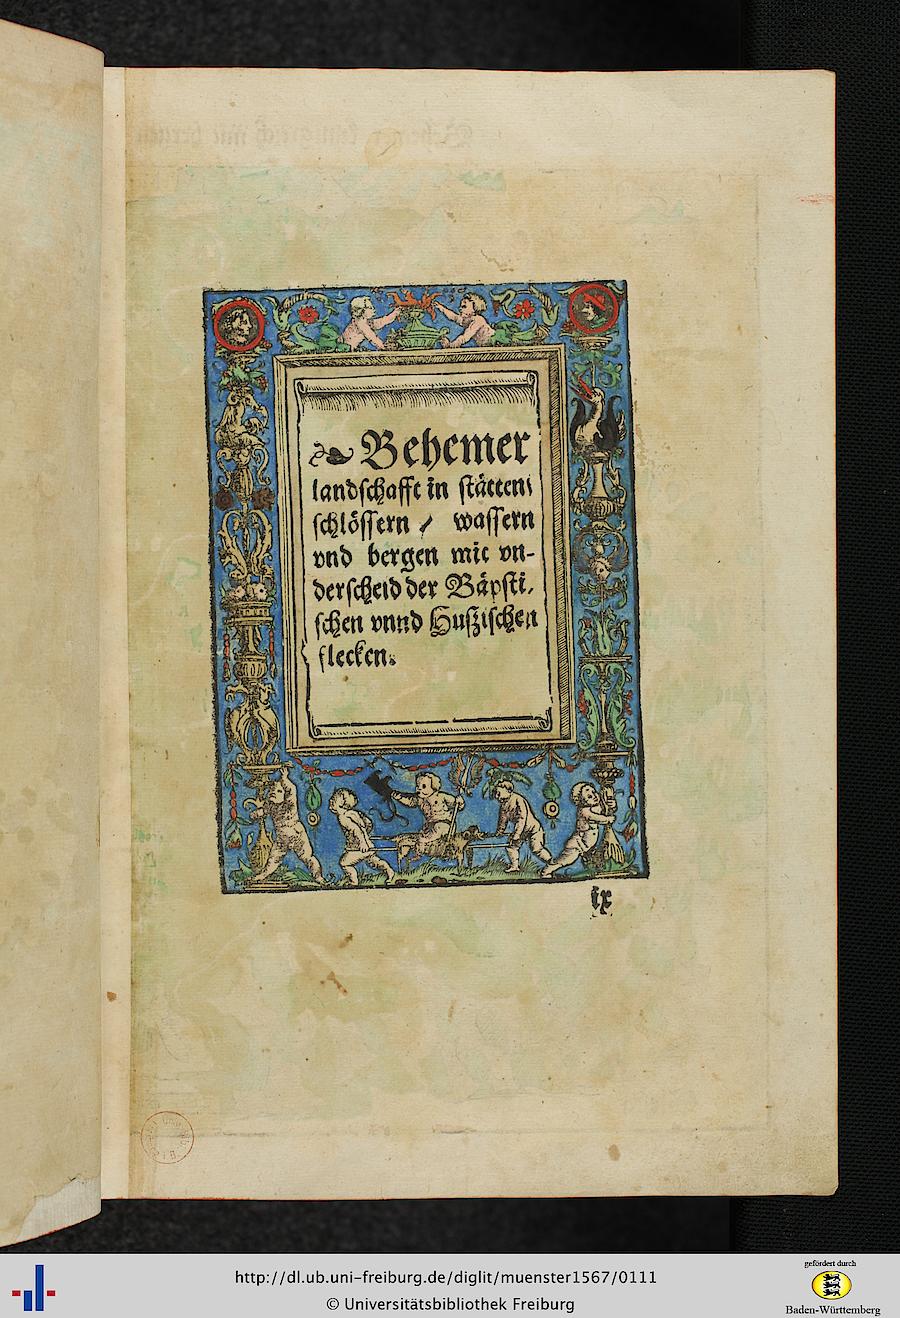 Behemer
landschafft in stätten
schlössern / wassern
vnd bergen mit vn-
derscheid der Bäpsti,
schen vnnd Huszischen
flecken.
ix
http://dl.ub.uni-freiburg.de/diglit/muenster1567/0111
© Universitätsbibliothek Freiburg
gefördert durch
Baden-Württemberg